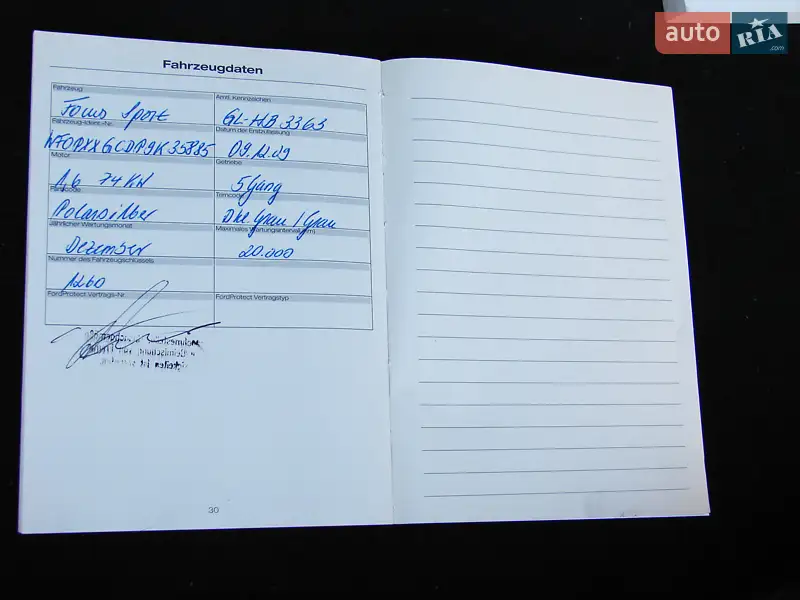 auto RIA .com
Fahrzeugdaten
Fahrzeug
Amtl. Kennzeichen
Focus Sport
GL-HB 3363
Fahrzeug-Ident.-Nr.
Datum der Erstzulassung
WF0PXXGCDP9K35885
09.12.09
Motor
Getriebe
1,6 74 KW
5 Gang
Polarsilber
Dkl. Grau / Grau
Jährlicher Wartungsmonat
Maximales Wartungsintervall (km)
Dezember
20.000
Nummer des Fahrzeugschlüssels
1260
FordProtect Vertrags-Nr.
FordProtect Vertragstyp
30